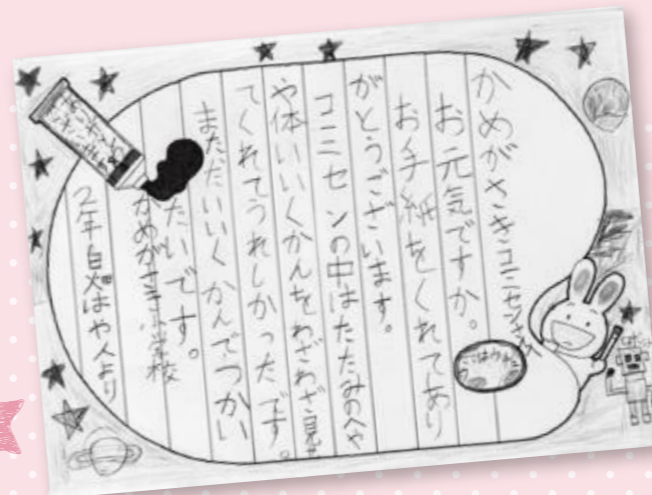 かめがさきコミセンさんへ
お元気ですか。
お手紙をくれてあり
がとうございます。
コミセンの中はたたみのへや
や体いいくかんをわざわざ見せ
てくれてうれしかったです。
まただいいくかんでつかい
たいです。
かめがさき小学校
2年 はや人より